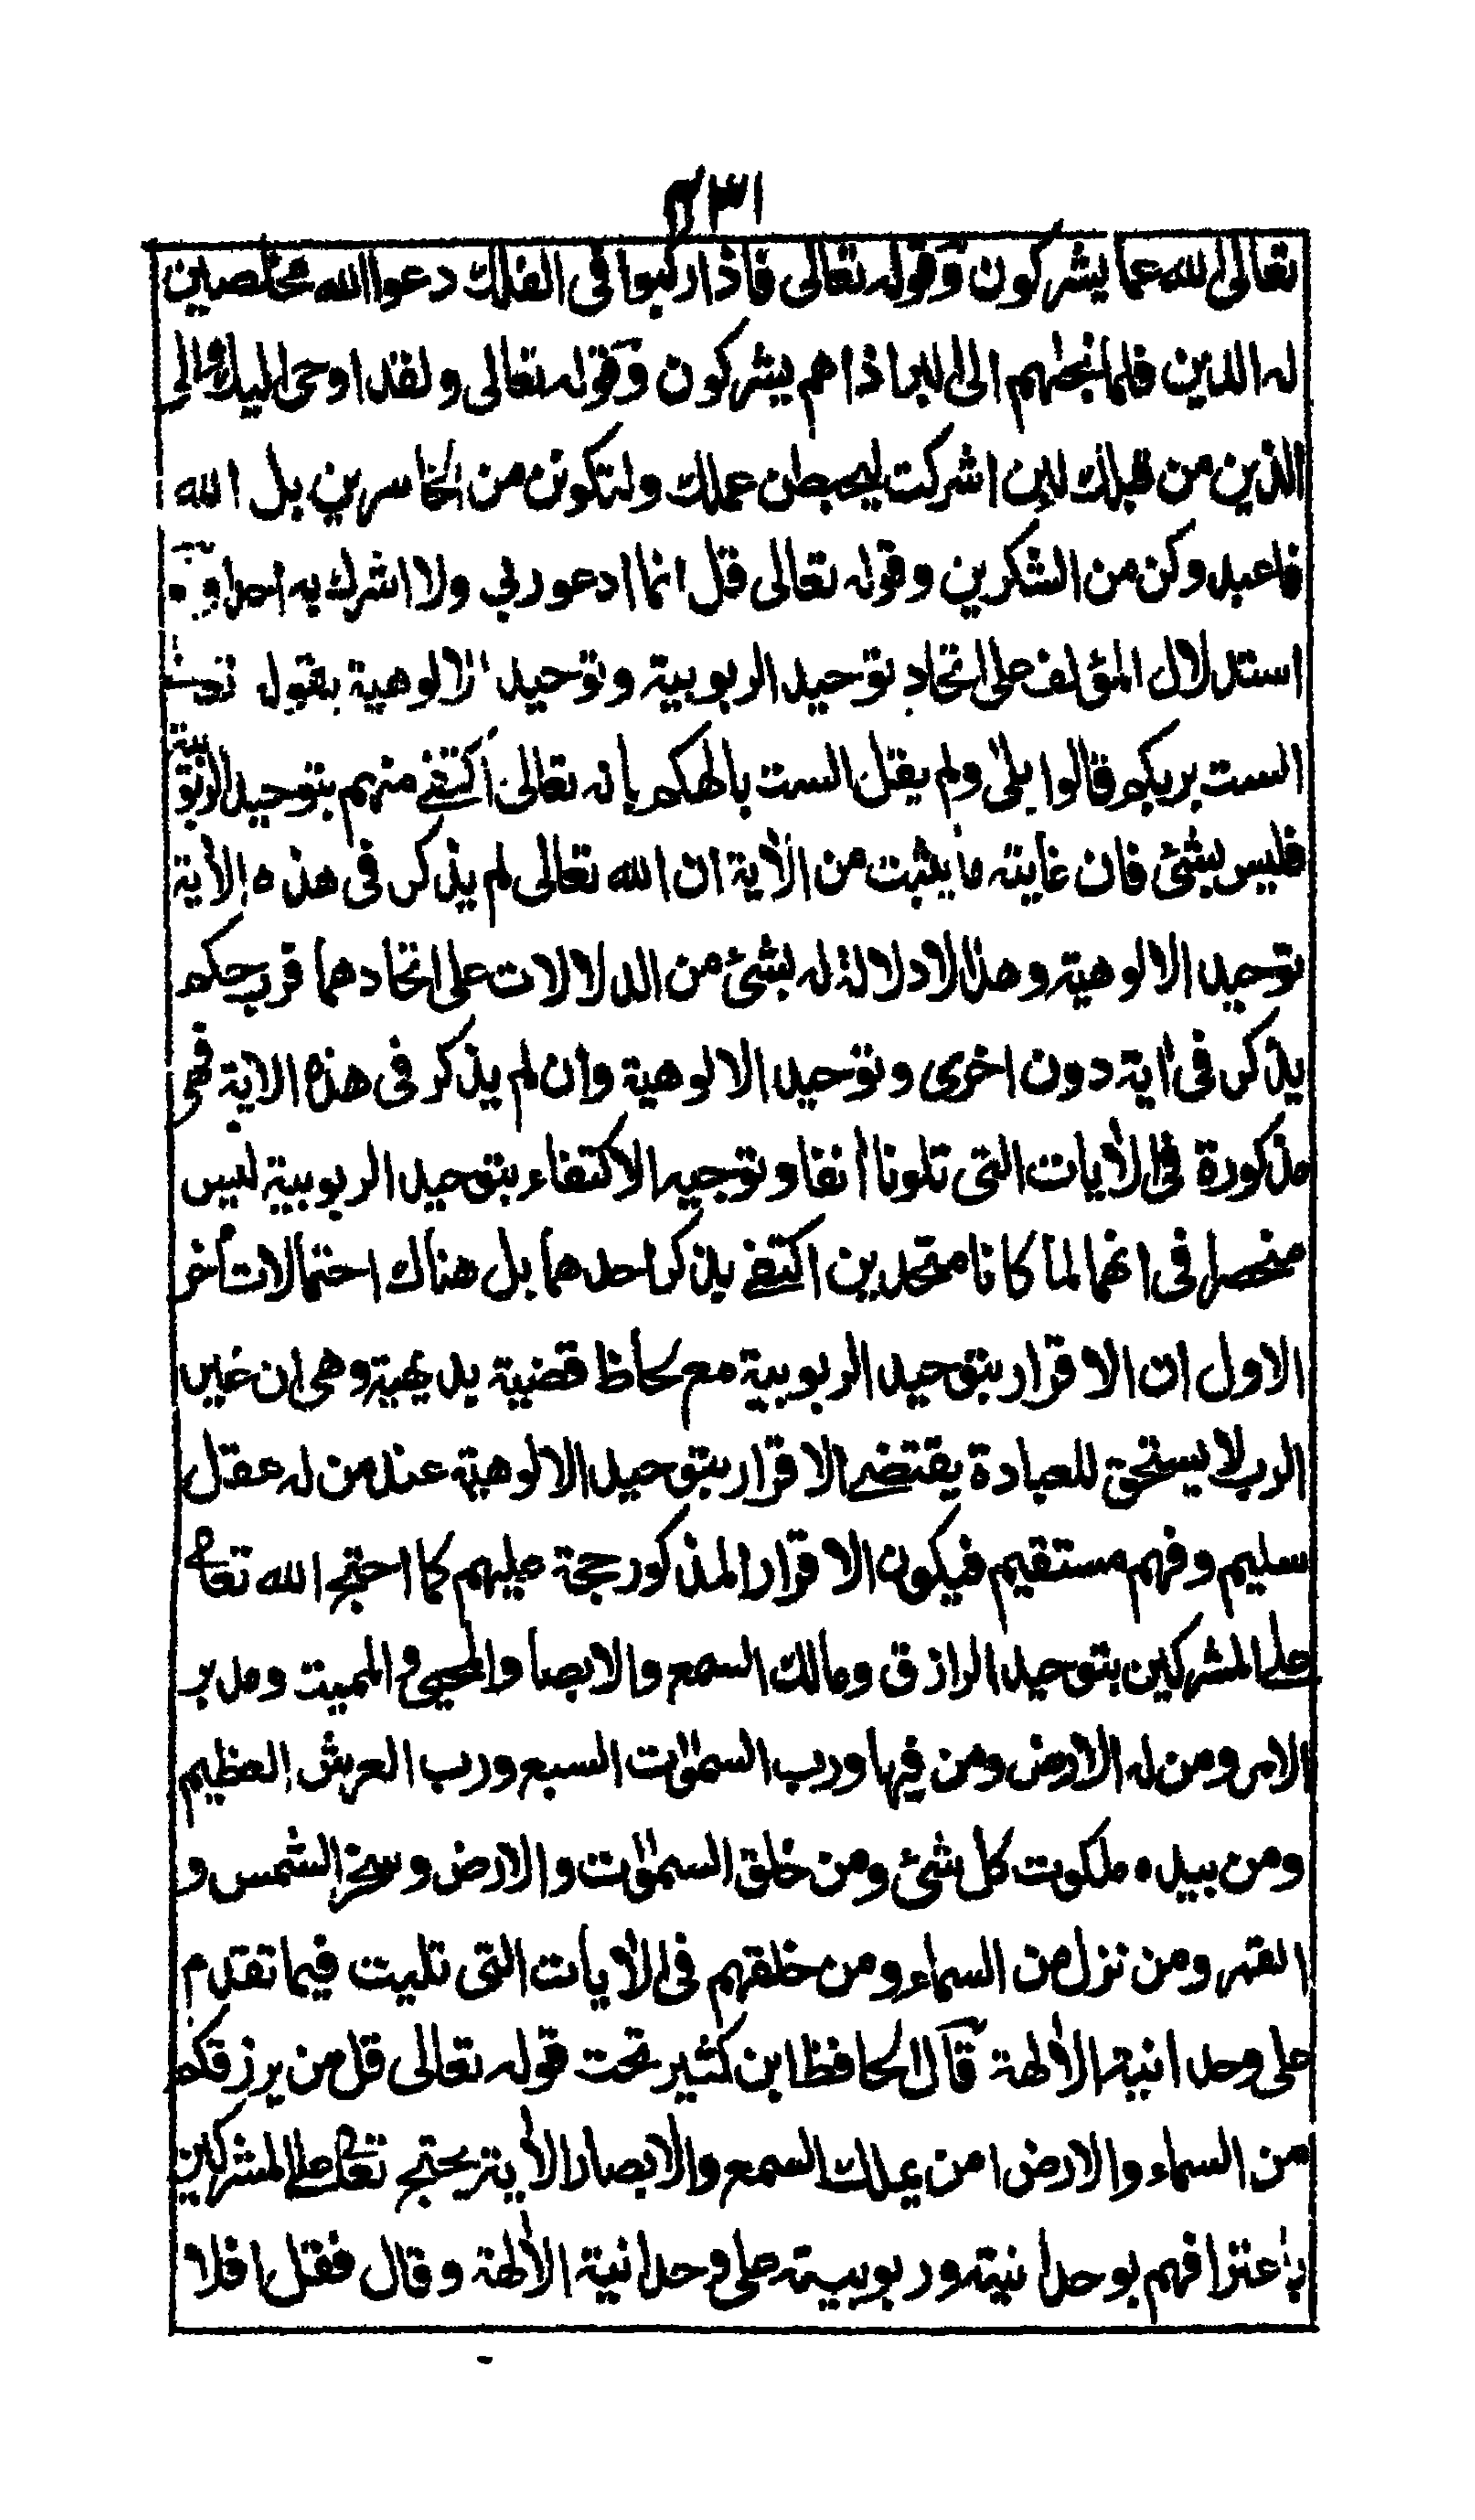 تعالى الله عما يشركون وقوله تعالى فاذا ركبوا فى الفلك دعوا الله مخلصين
له الدين فلما نجٰهم الى البر اذا هم يشركون وقوله تعالى ولقد اوحى اليك والى
الذين من قبلك لئن اشركت ليحبطن عملك ولتكونن من الخاسرين بل الله
فاعبد وكن من الشكرين وقوله تعالى قل انما ادعو ربي ولا اشرك به احدا و
استدلال المؤلف على اتحاد توحيد الربوبية وتوحيد الالوهية بقوله تعالى
الست بربكم قالوا بلى ولم يقل الست بالهكم بانه تعالى اكتفى منهم بتوحيد الربوبية
فليس بشئ فان غاية ما يثبت من الآية ان الله تعالى لم يذكر فى هذه الآية
توحيد الالوهية وهذا لا دلالة له بشئ من الدلالات على اتحادهما فرب حكم
يذكر فى آية دون اخرى وتوحيد الالوهية وان لم يذكر فى هذه الآية فهى
مذكورة فى الآيات التى تلونا آنفا وتوجيه الاكتفاء بتوحيد الربوبية ليس
منحصرا فى انهما لما كانا متحدين اكتفى بذكر احدهما بل هناك احتمالات أخر
الاول ان الاقرار بتوحيد الربوبية مع لحاظ قضية بديهية وهى ان غير
الرب لا يستحق للعبادة يقتضى الاقرار بتوحيد الالوهية عند من له عقل
سليم وفهم مستقيم فيكون الاقرار المذكور حجة عليهم كما احتج الله تعالى
على المشركين بتوحيد الرازق ومالك السمع والابصار والمحيى والمميت ومدبر
الامر ومن له الارض ومن فيها ورب السمٰوات السبع ورب العرش العظيم
ومن بيده ملكوت كل شئ ومن خلق السمٰوات والارض وسخر الشمس و
القمر ومن نزل من السماء ومن خلقهم فى الآيات التى تليت فيما تقدم
على وحدانية الآلهة قال الحافظ ابن كثير تحت قوله تعالى قل من يرزقكم
من السماء والارض امن يملك السمع والابصار الآية يحتج تعالى على المشركين
باعترافهم بوحدانيته وربوبيته على وحدانية الآلهة وقال فقل افلا